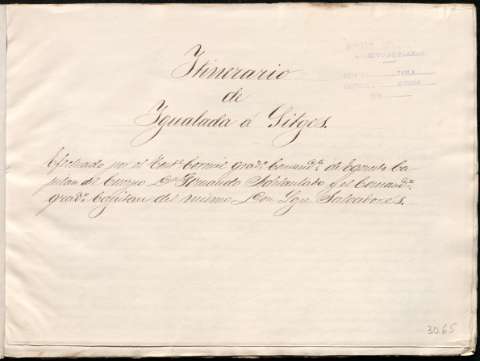 Itinerario
de
Igualada á Sitges.
Efectuado por el Tent.e Coronel grad.o Comand.te de Egercito Ca-
pitan del Cuerpo D.n Fernando y el Comand.te
grad.o Capitan del mismo Don
3065